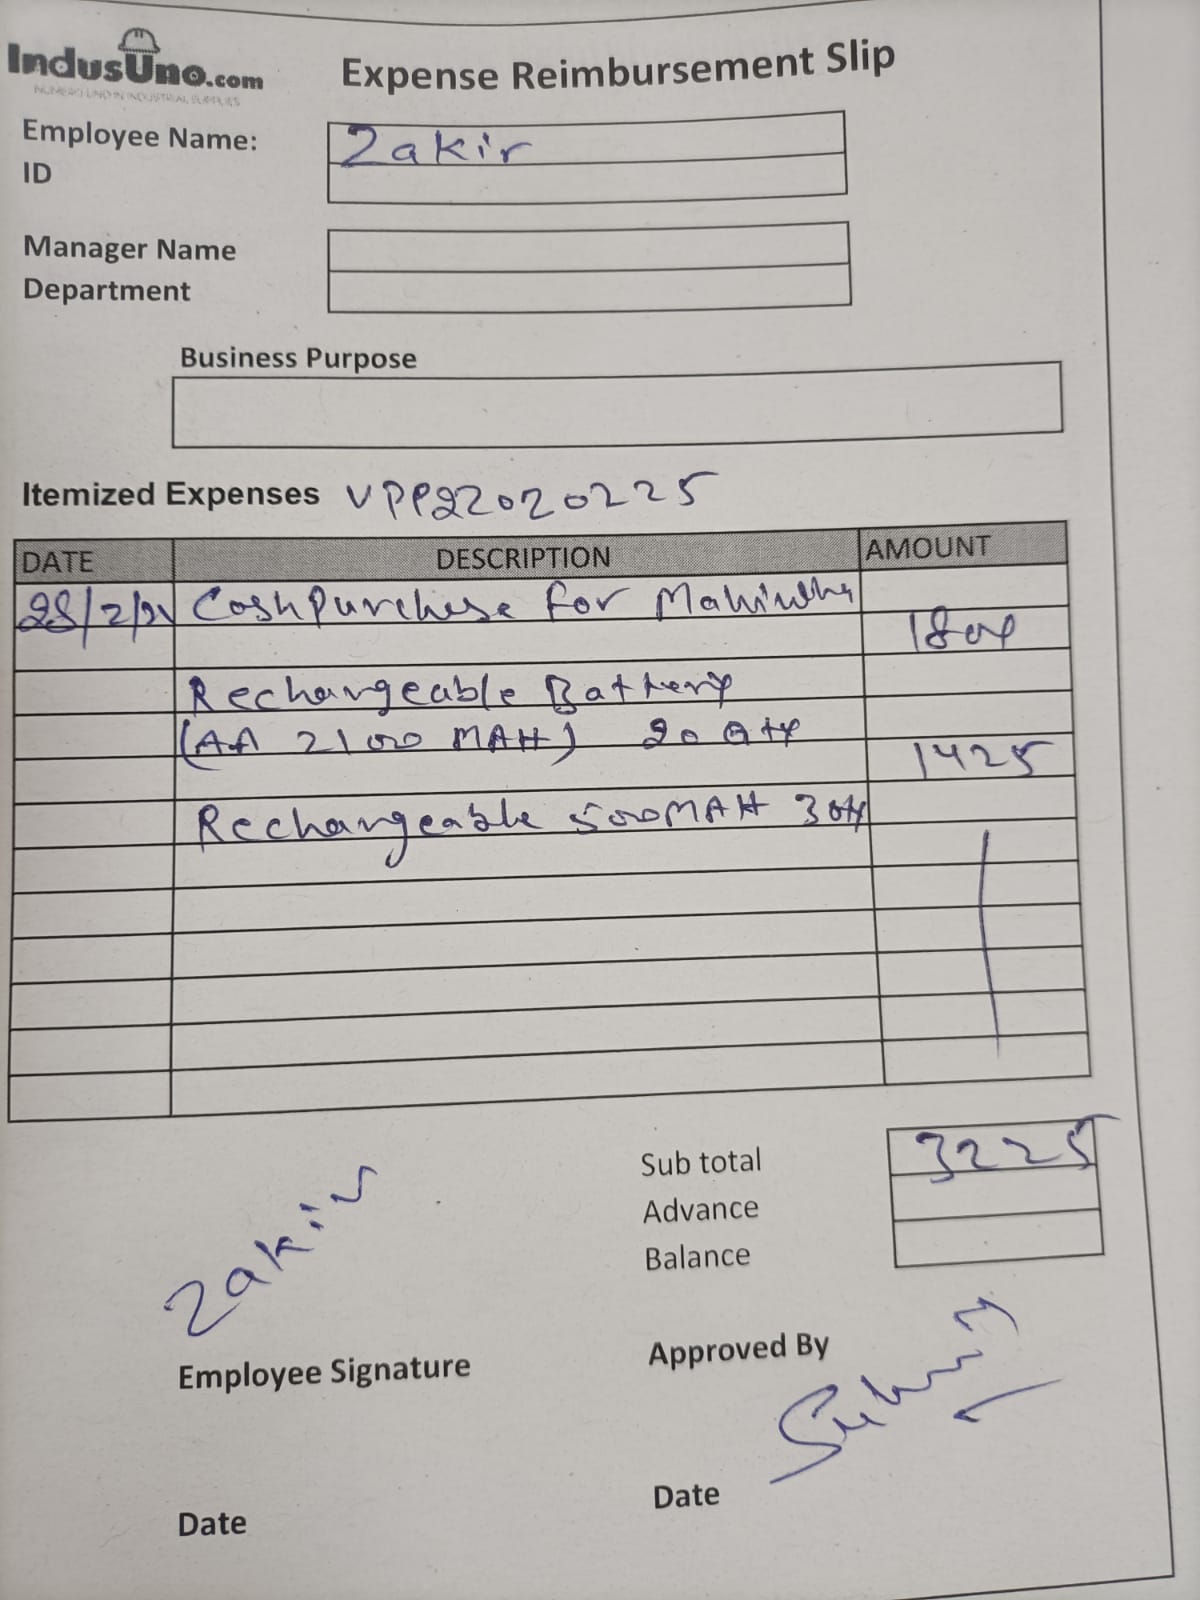 IndusUno.com
NUMERO UNO IN INDUSTRIAL SUPPLIES
Expense Reimbursement Slip
Employee Name: Zakir
ID
Manager Name
Department
Business Purpose
Itemized Expenses VPP22020225
DATE DESCRIPTION AMOUNT
Cash Purchase for
Rechargeable Battery
(AA 2100 MAH) 20 Qty
1425
Rechargeable 500MAH 3
Sub total 3225
Advance
Balance
Zakir
Employee Signature
Approved By
Date
Date